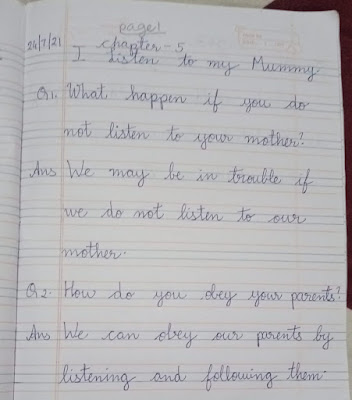 page 1
24/7/21 chapter-5
I listen to my Mummy
Q1. What happen if you do
not listen to your mother?
Ans We may be in trouble if
we do not listen to our
mother.
Q2. How do you obey your parents?
Ans We can obey our parents by
listening and following them.